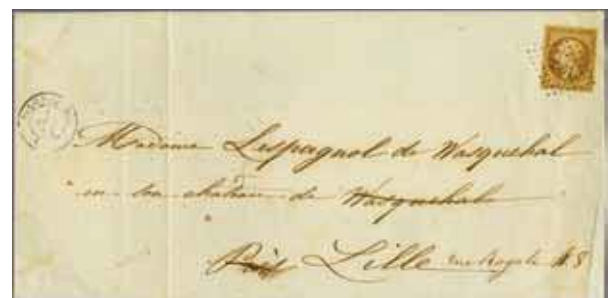 Madame Lespagnol de Wasquehal
en son château de Wasquehal
Près Lille rue Royale N. 8